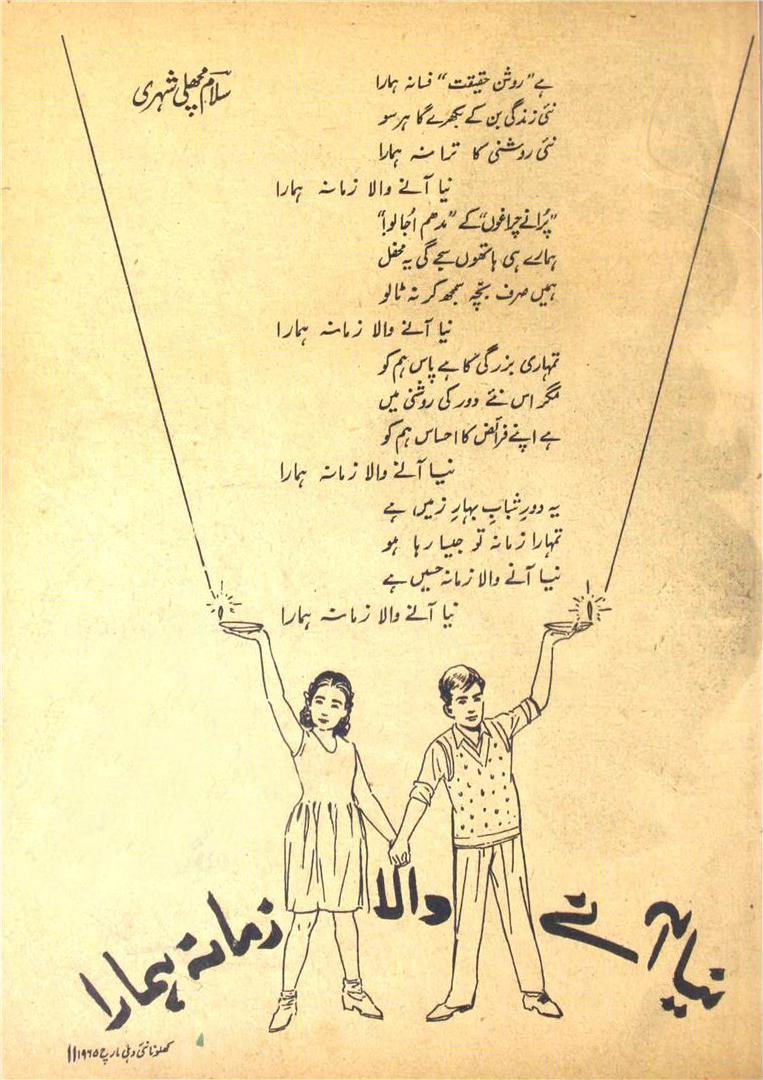 سلام مچھلی شہری
ہے "روشن حقیقت" فسانہ ہمارا
نئی زندگی بن کے بکھرے گا ہر سو
نئی روشنی کا ترانہ ہمارا
نیا آنے والا زمانہ ہمارا
"پُرانے چراغوں" کے "مدھم اُجالو!"
ہمارے ہی ہاتھوں سجے گی یہ محفل
ہمیں صرف بچّہ سمجھ کر نہ ٹالو
نیا آنے والا زمانہ ہمارا
تمہاری بزرگی کا ہے پاس ہم کو
مگر اس نئے دور کی روشنی میں
ہے اپنے فرائض کا احساس ہم کو
نیا آنے والا زمانہ ہمارا
یہ دورِ شبابِ بہارِ زمیں ہے
تمہارا زمانہ تو جیسا رہا ہو
نیا آنے والا زمانہ حسیں ہے
نیا آنے والا زمانہ ہمارا
نیا آنے والا زمانہ ہمارا
کھلونا نئی دہلی مارچ ۱۹۶۵ ۱۱